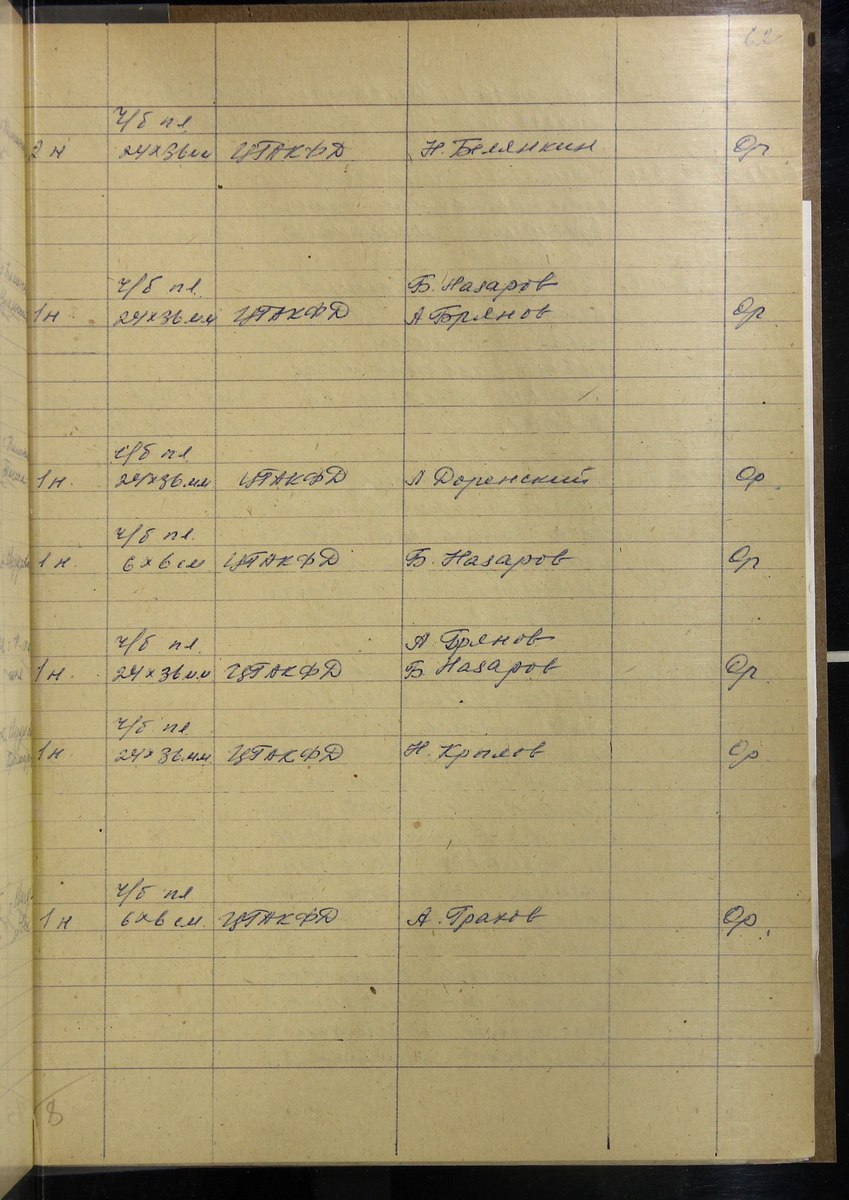 62
ч/б пл
2 н 24х36мм ЦГАКФД Н. Белянкин Ор.
ч/б пл. Б. Назаров
1 н 24х36мм ЦГАКФД А Брянов Ор
ч/б пл
1 н. 24х36мм ЦГАКФД Л Доренский Ор.
ч/б пл.
1 н. 6х6 см ЦГАКФД Б. Назаров Ор
ч/б пл. А. Брянов
1 н. 24х36мм ЦГАКФД Б Назаров Ор.
ч/б пл
1 н. 24х36мм ЦГАКФД Н. Крылов Ор.
ч/б пл
1 н 6х6 см. ЦГАКФД А. Грахов Ор.
8